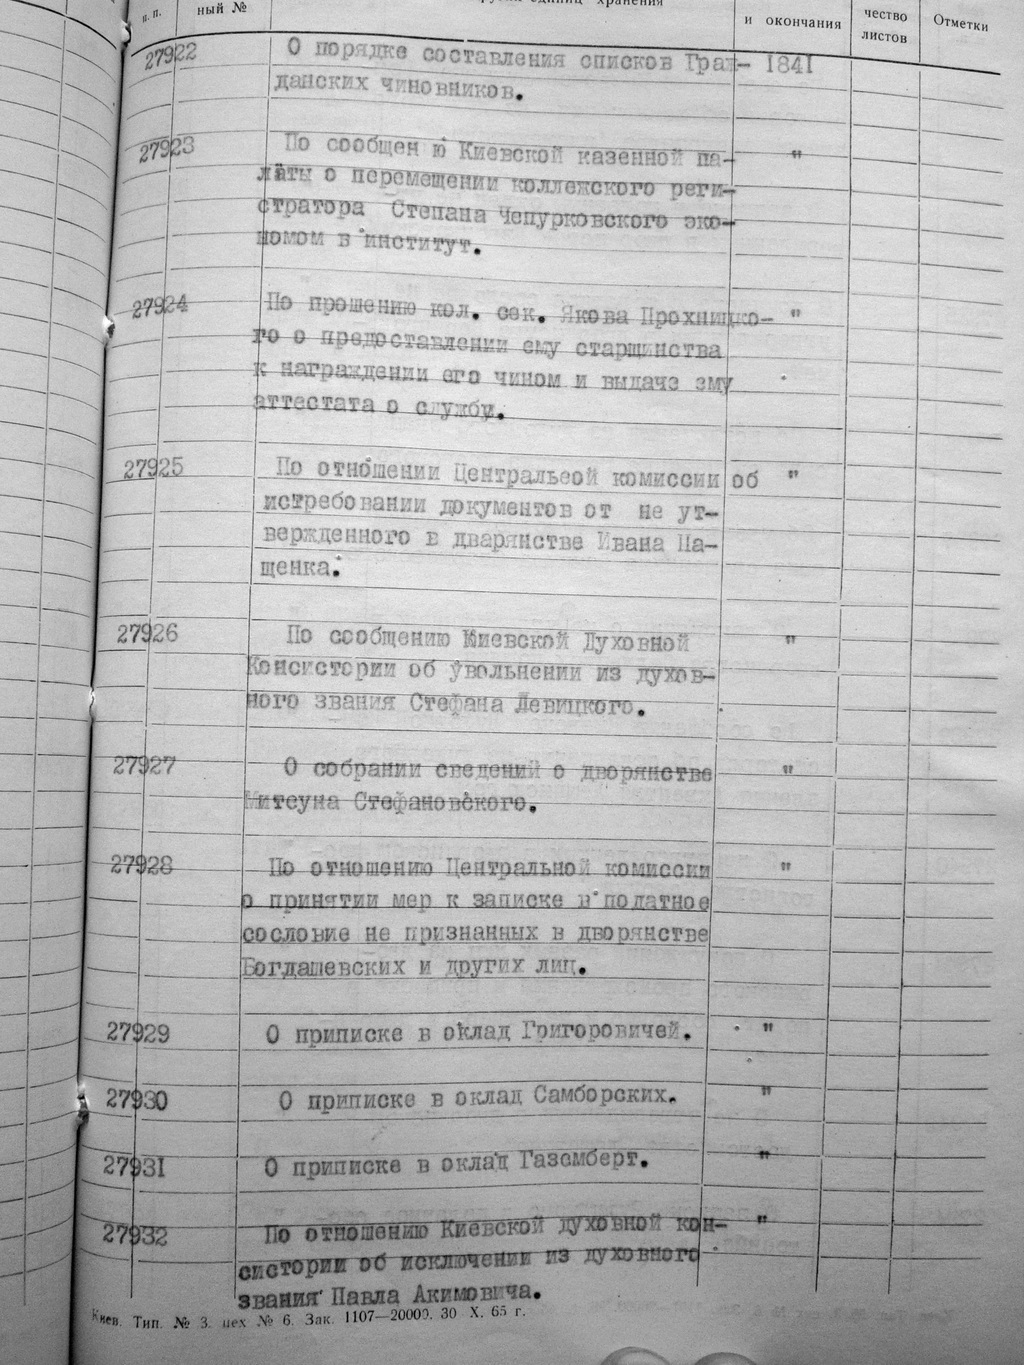 п. п. ный № единиц хранения и окончания чество листов Отметки
27922 О порядке составления списков Граж- 1841
данских чиновников.
27923 По сообщен ю Киевской казенной па- "
латы о перемещении коллежского реги-
стратора Степана Чепурковского эко-
номом в институт.
27924 По прошению кол. сек. Якова Прохницко- "
го о предоставлении ему старшинства
к награждении его чином и выдаче эму
аттестата о службу.
27925 По отношении Центральеой комиссии об "
истребовании документов от не ут-
вержденного в дварянстве Ивана Па-
щенка.
27926 По сообщению Киевской Духовной "
Консистории об увольнении из духов-
ного звания Стефана Левицкого.
27927 О собрании сведений о дворянстве "
Митсуна Стефановского.
27928 По отношению Центральной комиссии "
о принятии мер к записке в податное
сословие не признанных в дворянстве
Богдашевских и других лиц.
27929 О приписке в оклад Григоровичей. "
27930 О приписке в оклад Самборских. "
27931 О приписке в оклад Газемберг. "
27932 По отношению Киевской духовной кон- "
систории об исключении из духовного
звания Павла Акимовича.
Киев. Тип. № 3. цех № 6. Зак. 1107—20000. 30 X. 65 г.